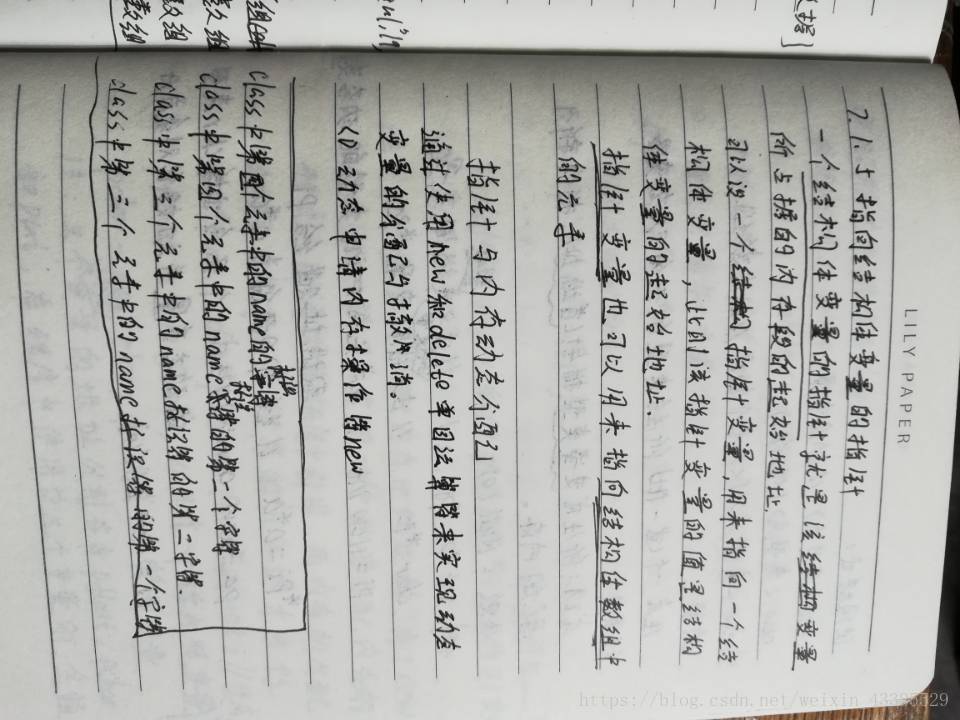 LILY PAPER
7.1.5 指向结构体变量的指针
一个结构体变量的指针就是该结构变量
所占据的内存段的起始地址
可以设一个指针变量,用来指向一个结
构体变量,此时该指针变量的值是结构
体变量的起始地址.
指针变量也可以用来指向结构体数组中
的元素
指针与内存动态分配
通过使用new和delete单目运算符来实现动态
变量的分配与撤消。
(1)动态申请内存操作符new
class中第四个元素中的name的
class中第四个元素中的name 的第一个字符
class中第三个元素中的name标识符的第二字符.
class中第三个元素中的name标识符的第一个字符
https://blog.csdn.net/weixin_43395529